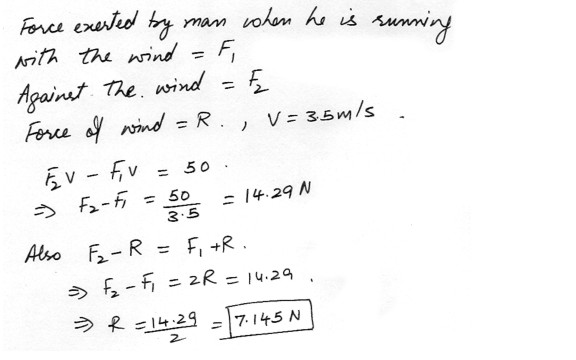 Force exerted by man when he is running
with the wind = F₁
Against the. wind = F₂
Force of wind = R . , V = 3.5m/s .
F₂V - F₁V = 50 .
⇒ F₂-F₁ = 50/3.5 = 14.29 N
Also F₂-R = F₁+R .
⇒ F₂-F₁ = 2R = 14.29 .
⇒ R = 14.29/2 = 7.145 N